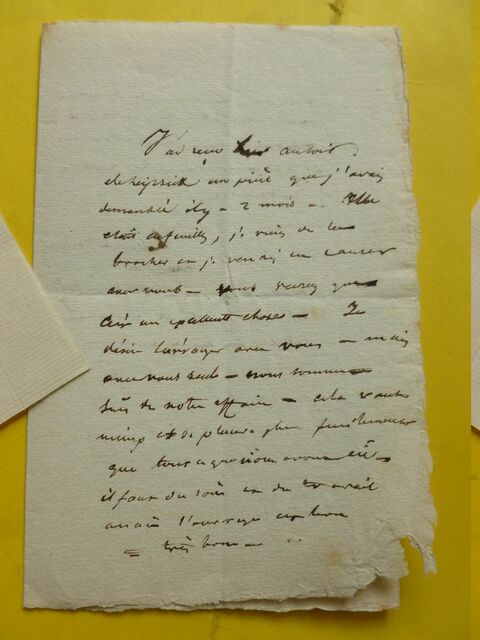 J'ai reçu hier au soir
de Leipzick un que j'avais
demandé il y a 2 mois - Elle
était en feuilles, je viens de la
brocher et je venais en causer
avec vous - vous verrez que
c'est un excellente chose - Je
désire avec vous - mais
avec vous seul - nous sommes
sûr de notre affaire - cela vaut
mieux et se plus
que tout ce que nous avons
il faut du soin et du travail
mais l'ouvrage est bon
= très bon